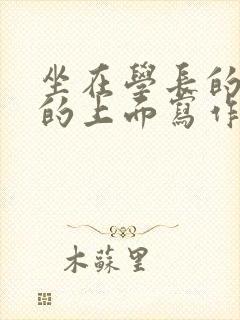 坐在學長的
的上面寫作
木蘇里